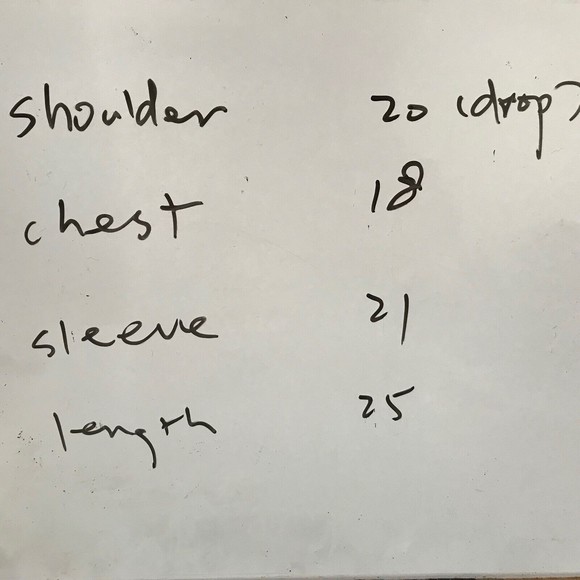 shoulder 20 (drop)
chest 18
sleeve 21
length 25